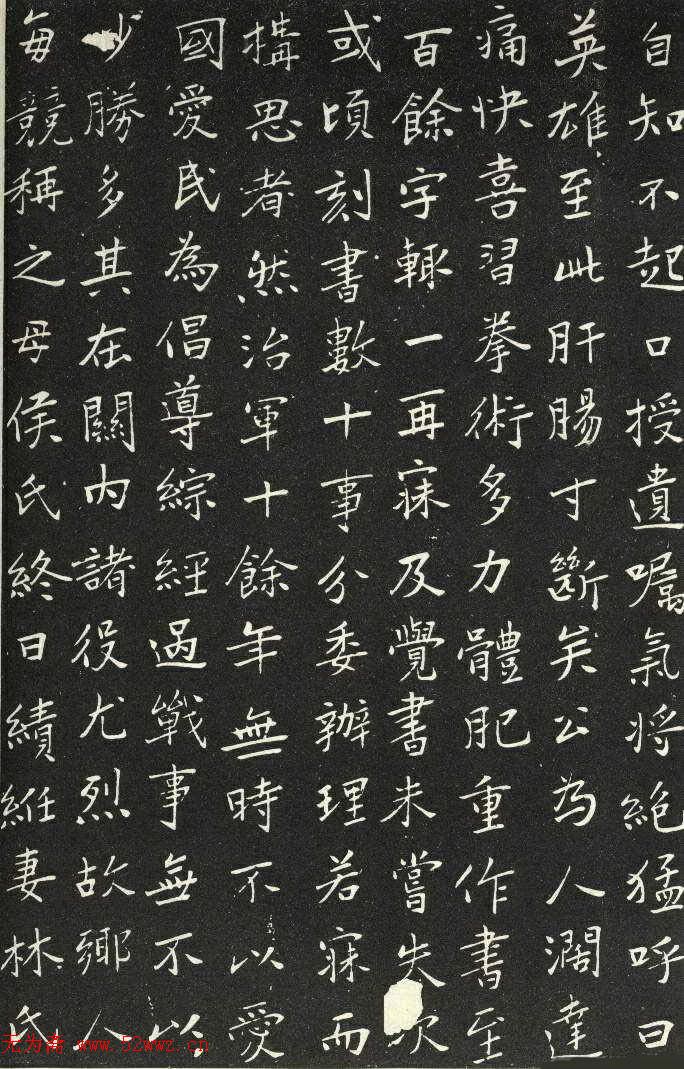 自知不起口授遺嘱氣將絕猛呼曰
英雄至此肝腸寸斷矣公為人濶達
痛快喜習拳術多力體肥重作書至
百餘字輒一再寐及覺書未嘗失次
或頃刻書數十事分委辦理若寐而
構思者然治軍十餘年無時不以愛
國愛民為倡導綜經過戰事無不以
少勝多其在關內諸役尤烈故鄉人
每競稱之母侯氏終日績絍妻林氏
无为斋 www.52wwz.cn